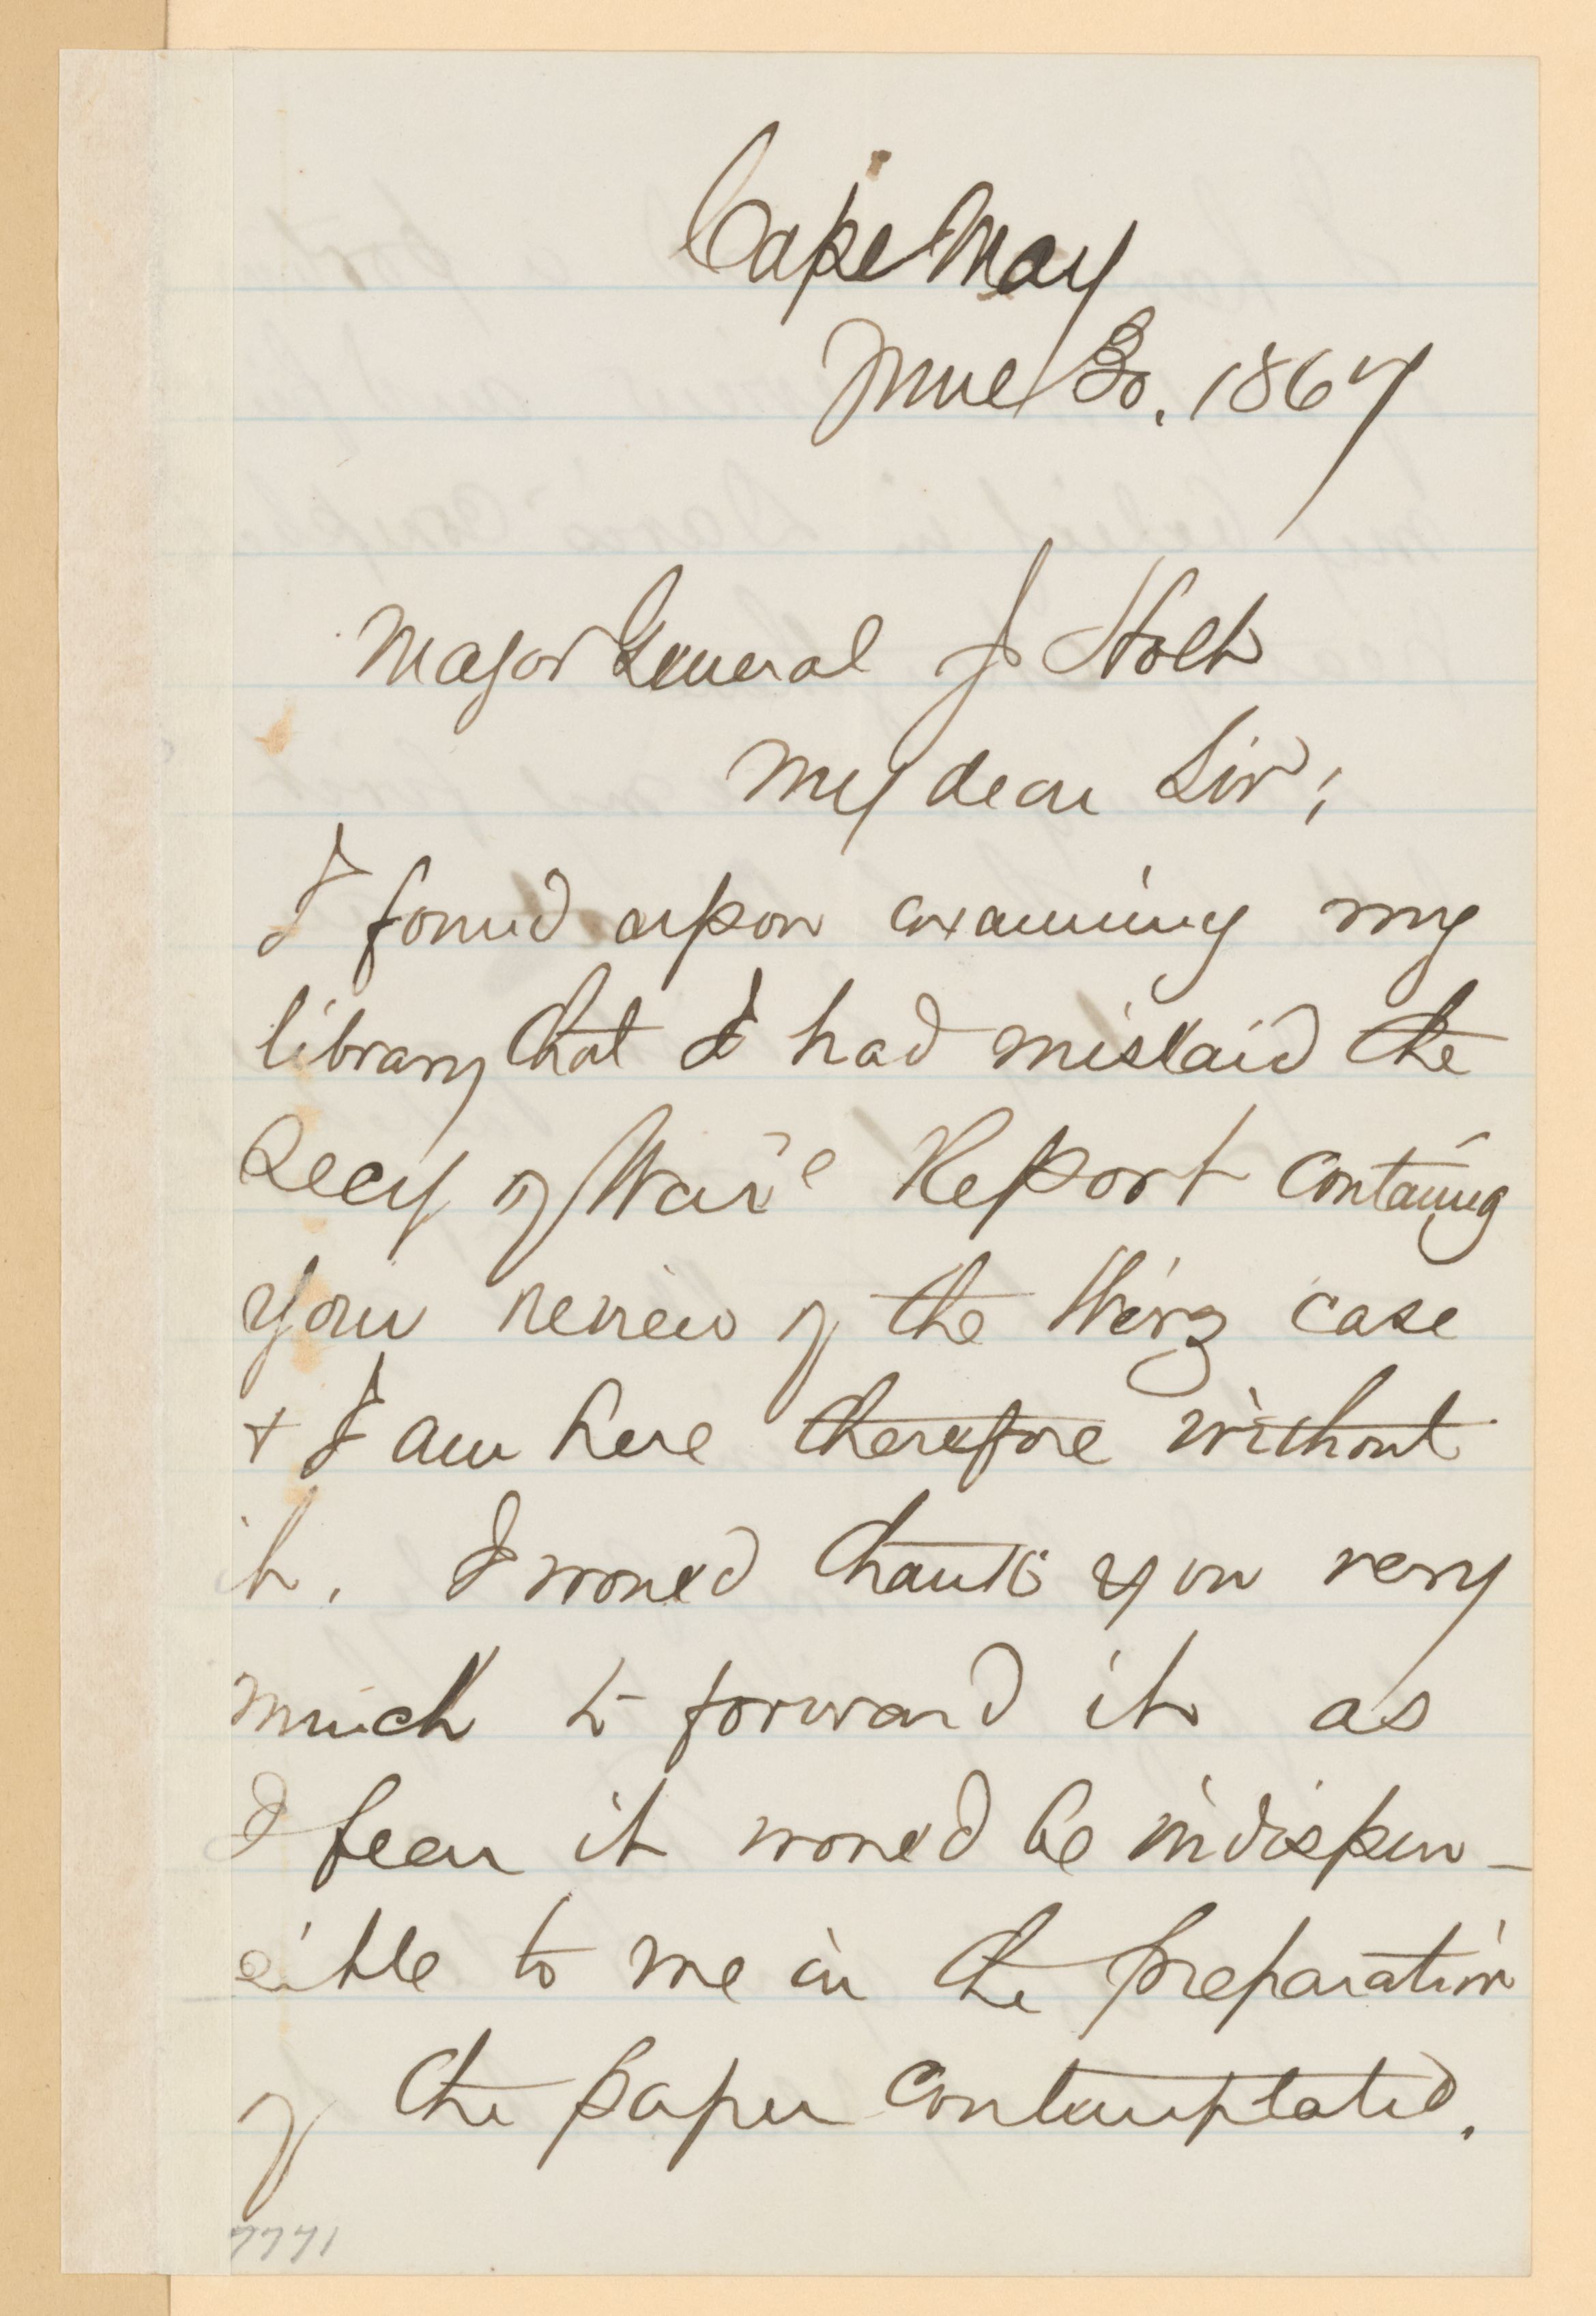 Cape May
June 30. 1867
Major General J Holt
My dear Sir;
I found upon examining my
library that I had mislaid the
Secy of War's Report containg
your review of the Wirz case
+ I am here therefore without
it. I would thank you very
much to forward it as
I fear it would be indispen-
sible to me in the preparation
of the paper contemplated.
7771